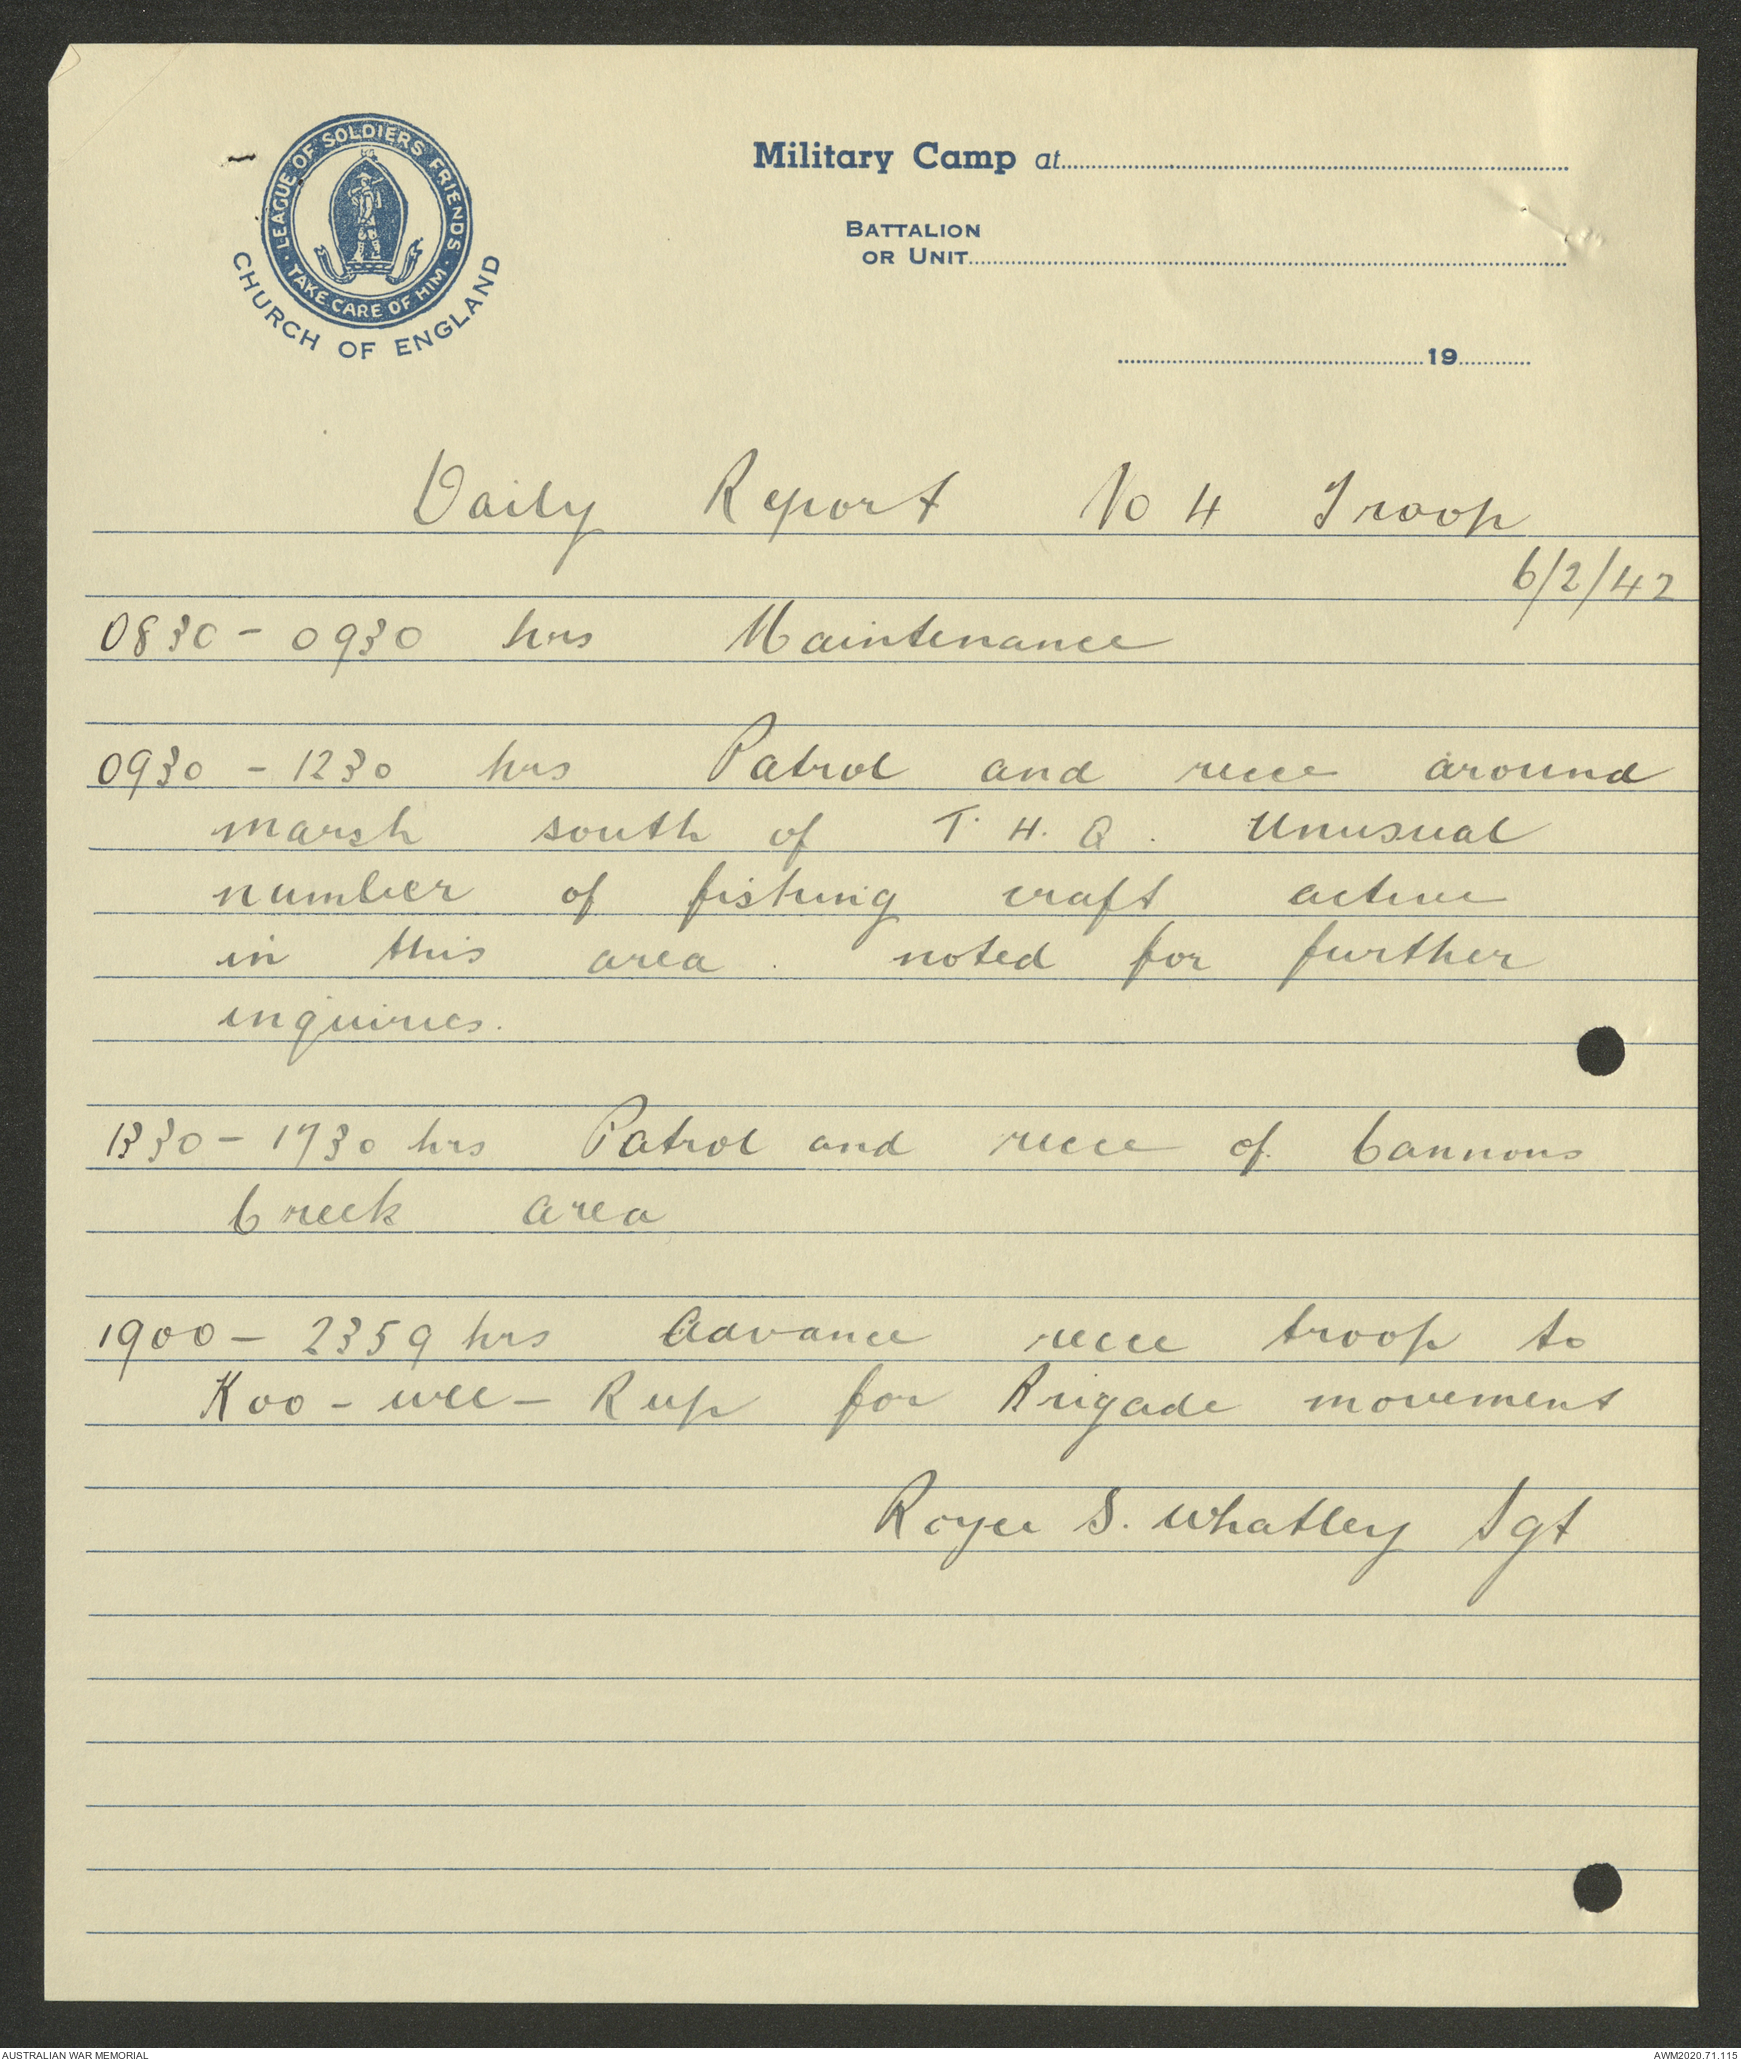 LEAGUE OF SOLDIERS' FRIENDS
TAKE CARE OF HIM
CHURCH OF ENGLAND
Military Camp at
BATTALION
OR UNIT
19
Daily Report No 4 Troop
6/2/42
0830 - 0930 hrs Maintenance
0930 - 1230 hrs Patrol and recce around
marsh south of T.H.Q. Unusual
number of fishing craft active
in this area. noted for further
inquiries.
1330 - 1730 hrs Patrol and recce of Cannons
Creek area
1900 - 2359 hrs Advance recce troop to
Koo-wee-Rup for Brigade movement
Roger S. Whatley Sgt
AUSTRALIAN WAR MEMORIAL
AWM2020.71.115